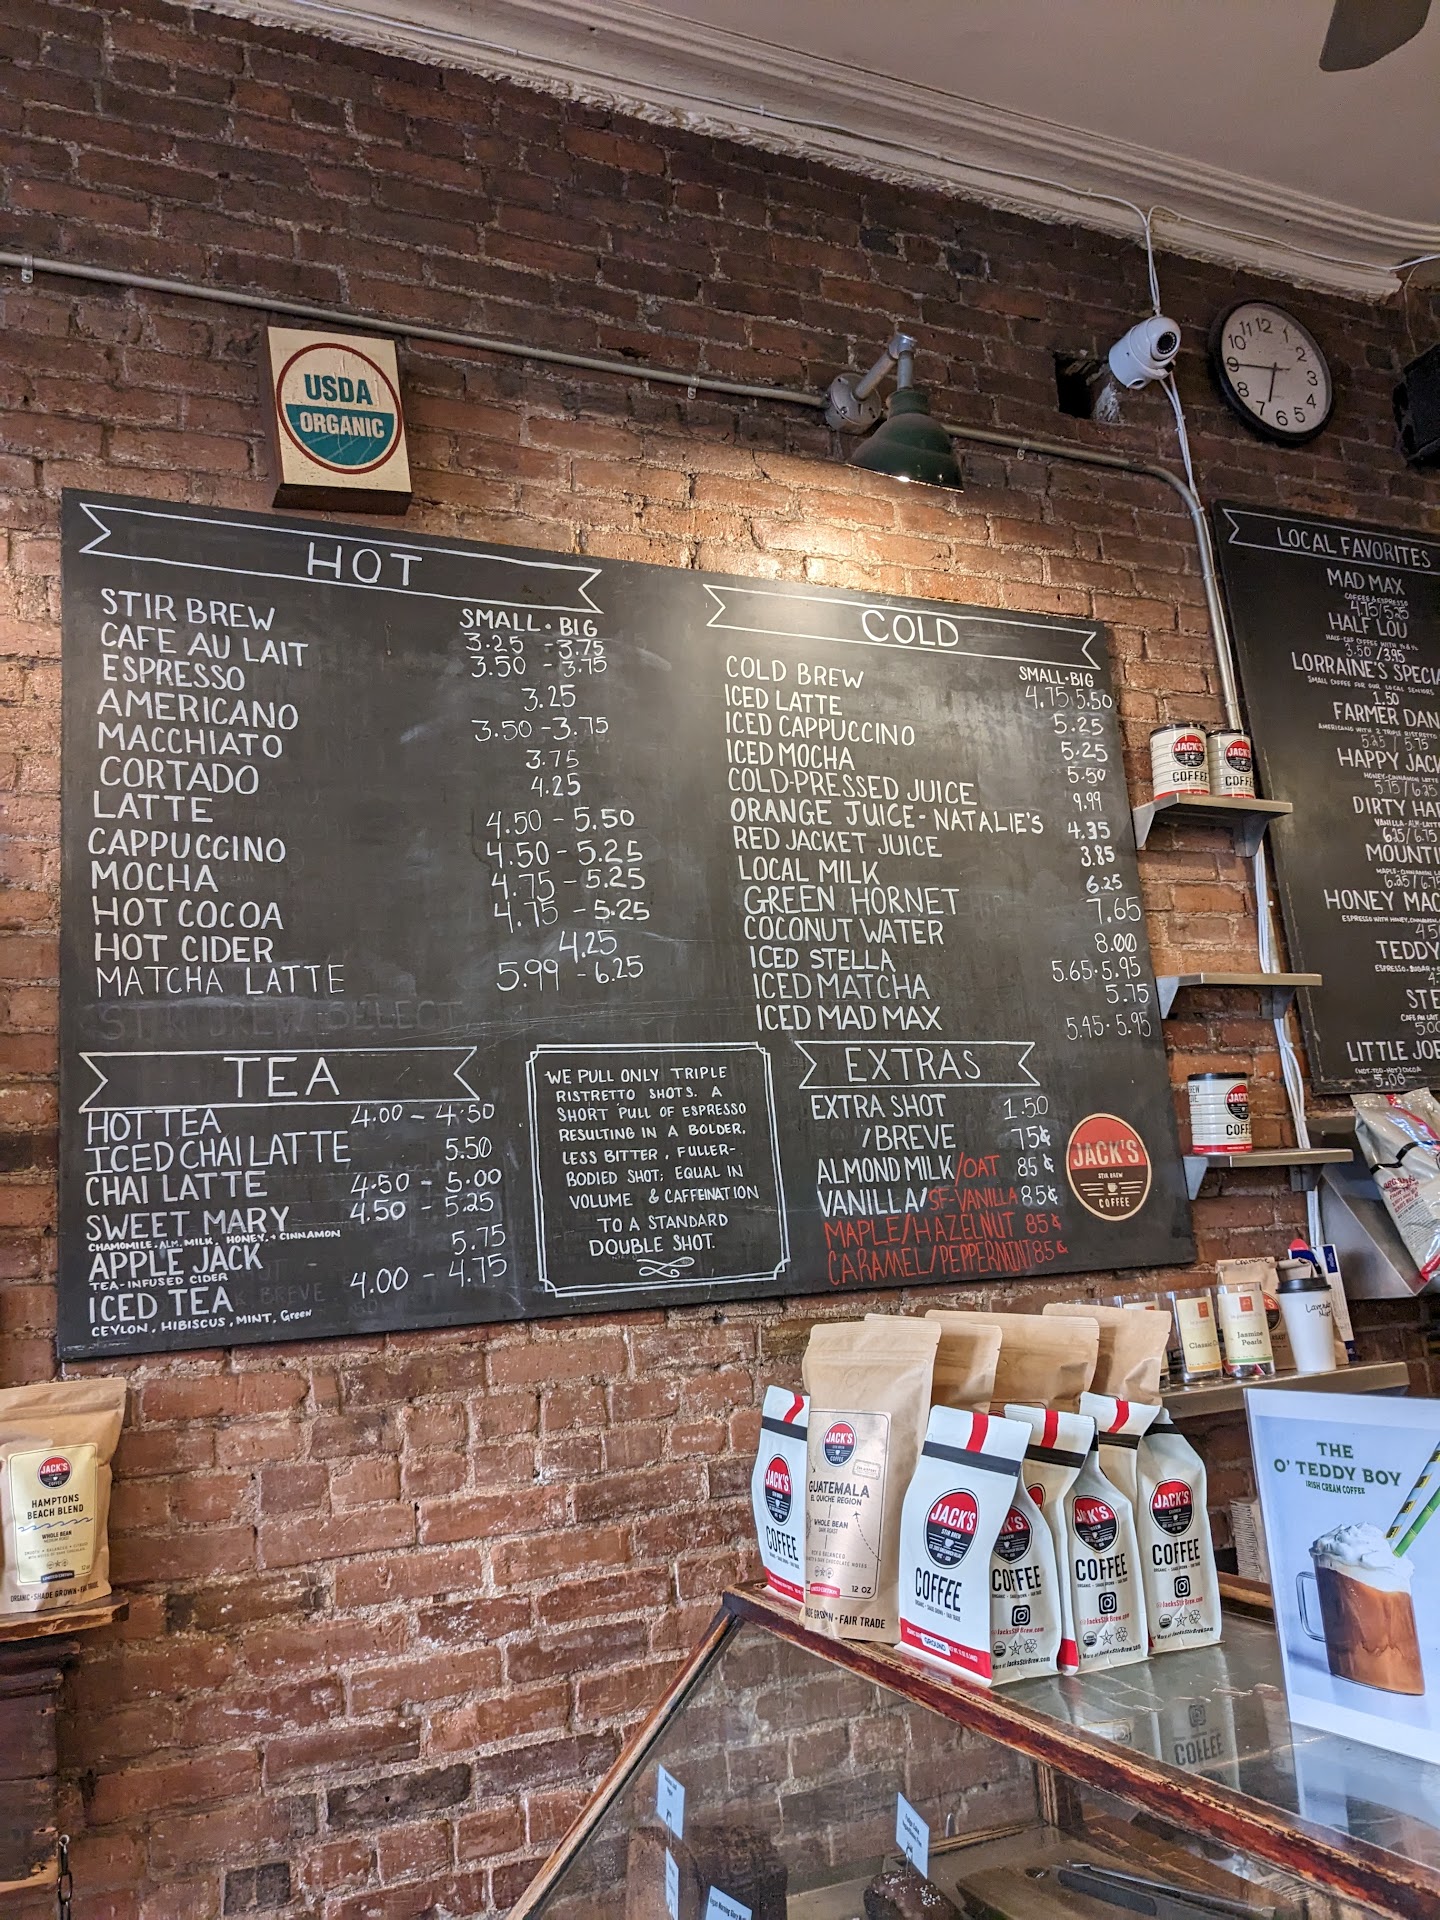 USDA
ORGANIC
12
1
2
3
5
6
7
8
9
10
11
HOT
SMALL · BIG
STIR BREW 3.25 - 3.75
CAFE AU LAIT 3.50 - 3.75
ESPRESSO 3.25
AMERICANO 3.50 - 3.75
MACCHIATO 3.75
CORTADO 4.25
LATTE 4.50 - 5.50
CAPPUCCINO 4.50 - 5.25
MOCHA 4.75 - 5.25
HOT COCOA 4.75 - 5.25
HOT CIDER 4.25
MATCHA LATTE 5.99 - 6.25
STIR BREW SELECT
TEA
HOT TEA 4.00 - 4.50
ICED CHAI LATTE 5.50
CHAI LATTE 4.50 - 5.00
SWEET MARY 4.50 - 5.25
CHAMOMILE, ALM. MILK, HONEY, + CINNAMON
APPLE JACK 5.75
TEA-INFUSED CIDER
ICED TEA 4.00 - 4.75
CEYLON, HIBISCUS, MINT, Green
WE PULL ONLY TRIPLE
RISTRETTO SHOTS. A
SHORT PULL OF ESPRESSO
RESULTING IN A BOLDER,
LESS BITTER, FULLER-
BODIED SHOT; EQUAL IN
VOLUME & CAFFEINATION
TO A STANDARD
DOUBLE SHOT.
COLD
SMALL · BIG
COLD BREW 4.75 · 5.50
ICED LATTE 5.25
ICED CAPPUCCINO 5.25
ICED MOCHA 5.50
COLD-PRESSED JUICE 9.99
ORANGE JUICE - NATALIE'S 4.35
RED JACKET JUICE 3.85
LOCAL MILK 6.25
GREEN HORNET 7.65
COCONUT WATER 8.00
ICED STELLA 5.65 · 5.95
ICED MATCHA 5.75
ICED MAD MAX 5.45 · 5.95
EXTRAS
EXTRA SHOT 1.50
/BREVE 75¢
ALMOND MILK/OAT 85¢
VANILLA/SF-VANILLA 85¢
MAPLE/HAZELNUT 85¢
CARAMEL/PEPPERMINT 85¢
JACK'S
STIR BREW
COFFEE
LOCAL FAVORITES
MAD MAX
COFFEE & ESPRESSO
4.75/5.25
HALF LOU
3.50/3.95
LORRAINE'S SPECIA
SMALL COFFEE FOR OUR LOCAL SENIORS
1.50
FARMER DAN
AMERICANO WITH 2 TRIPLE RISTRETTO
5.25 / 5.75
HAPPY JACK
HONEY-CINNAMON LATTE
5.75 / 6.25
DIRTY HAR
VANILLA-ALM-LATTE
6.25/6.75
MOUNTI
MAPLE-CINNAMON LA
6.25/6.75
HONEY MAC
ESPRESSO WITH HONEY, CINNAMON
4.50
TEDDY
ESPRESSO, SUGAR
STE
CAFE AU LAIT
5.00
LITTLE JOE
(NOT-TOO-HOT) COCOA
5.00
JACK'S
COFFEE
JACK'S
COFFEE
JACK'S
COFF
Classic
Jasmine
Pearls
JACK'S
STIR BREW
COFFEE
HAMPTONS
BEACH BLEND
WHOLE BEAN
ORGANIC · SHADE GROWN · FAI
JACK'S
COFFEE
JACK'S
COFFEE
GUATEMALA
EL QUICHE REGION
WHOLE BEAN
DARK ROAST
LIMITED EDITION
12 OZ
FAIR TRADE
JACK'S
STIR BREW
COFFEE
ORGANIC · SHADE GROWN · FAIR TRADE
GROUND
CK'S
COFFEE
JacksStirBrew.com
JACK'S
COFFEE
JacksStirBrew.com
JACK'S
COFFEE
ORGANIC · SHADE GROWN · FAIR TRADE
THE
O' TEDDY BOY
IRISH CREAM COFFEE